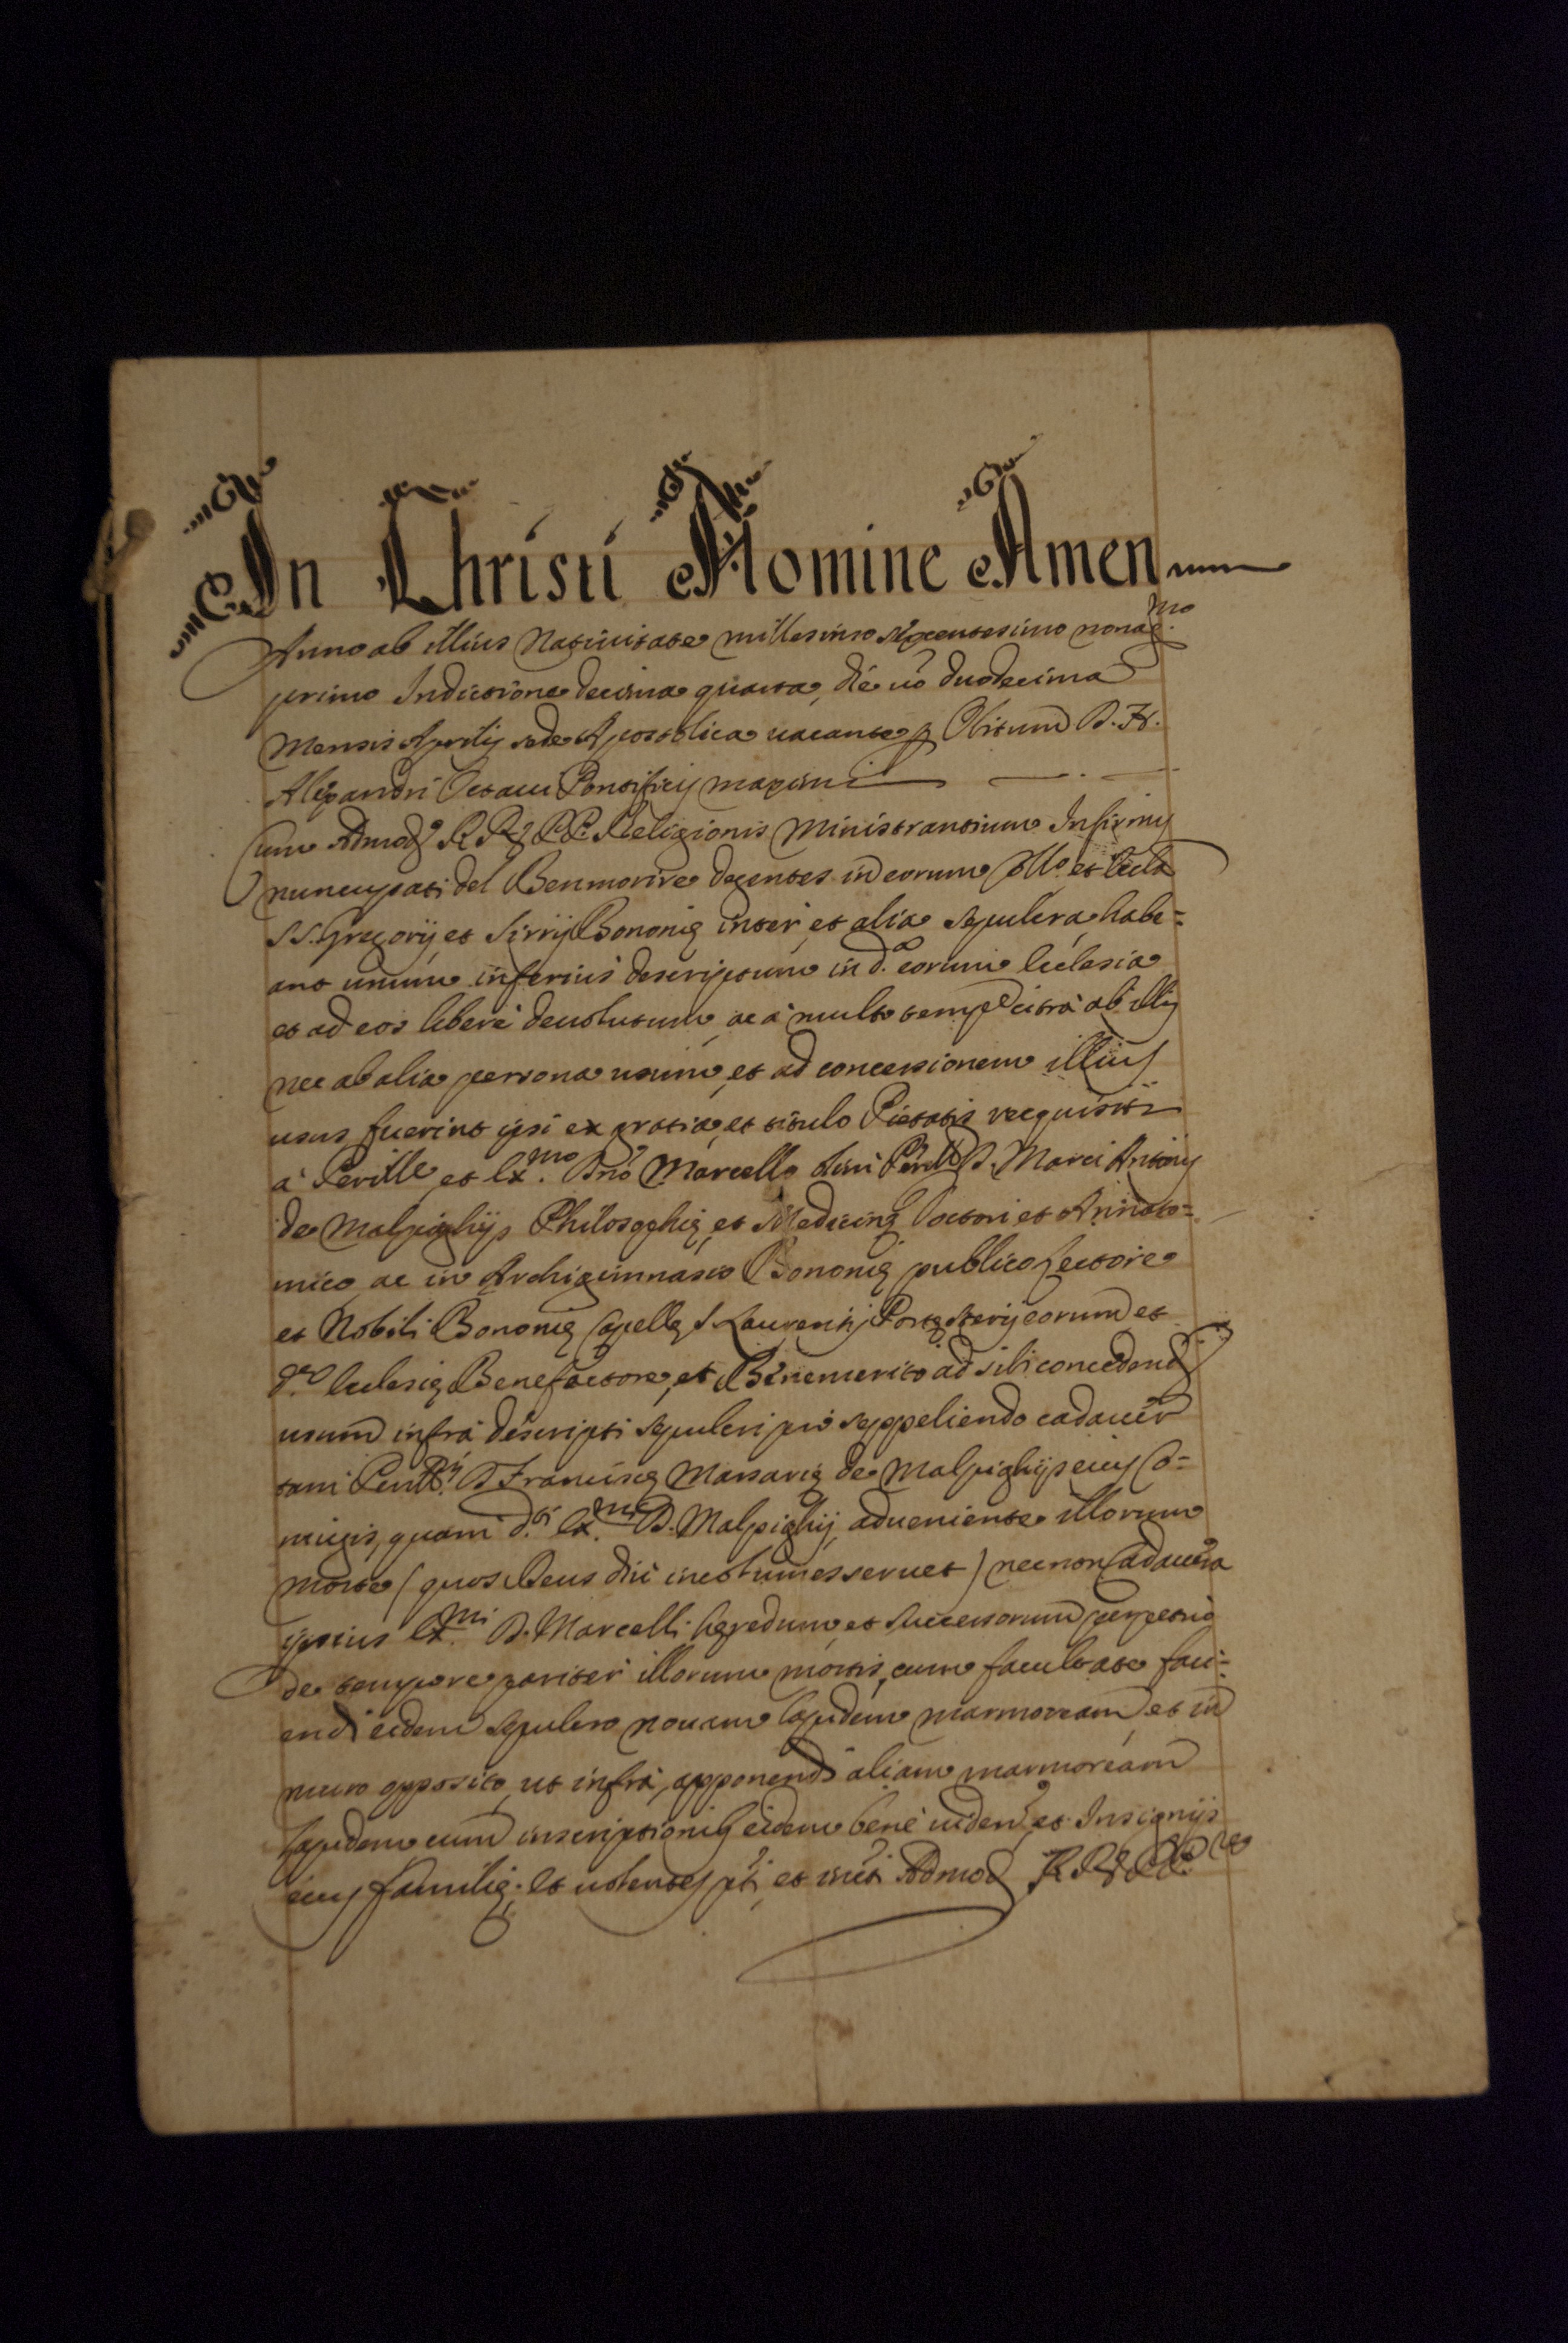 In Christi Nomine Amen
Anno ab illius Natiuitate millesimo sexcentesimo nonag.mo
primo Indictione decima quarta, die uo duodecima
Mensis Aprilis sede Apostolica uacante p Obitum S. H.
Alexandri Octaui Pontificis maximi
Cum Admod RR. PP. Religionis Ministrantium Infirmis
nuncupati del Benmorire degentes in eorum et
SS. Gregorij et Sirij Bononię inter et alia sepulcra habe-
ant unum inferius descriptum in d.a eorum Ecclesia
et ad eos libere deuolutum, ac à multo tempe citrà ab illis
nec ab alia persona usum, et ad concessionem illius
usus fuerint ipsi ex gratia, et titulo Pietatis recquisiti
à Perille et Ex.mo Dno Marcello D. Marci Antonij
de Malpighijs Philosophię et Medicinę Doctori et Annato-
mico ac in Archigimnasio Bononię publico Lectore
et Nobili Bononię Capellę S. Laurentij Portę Sterij eorum et
Ecclesię Benefactore, et Benemerito ad sibi concedend
usum infrà descripti sepulcri pro seppeliendo cadauer
tam D. Franciscę Massarię de Malpighijs eius Co-
niugis, quam d.ti Ex.mi D. Malpighij, adueniente illorum
morte (quos Deus diù incolumes seruet) necnon Cadauera
ipsius Ex.mi D. Marcelli hęredum, et successorum perpetuo
de tempore pariter illorum mortis, cum facultate faci-
endi eidem sepulcro nouam lapidem marmoream et in
muro opposito, ut infrà, apponendi aliam marmoream
lapidem cum inscriptionib eidem bene uiden, et Insignijs
eius familię. Et uolentes pti, et Admod RR. PP.